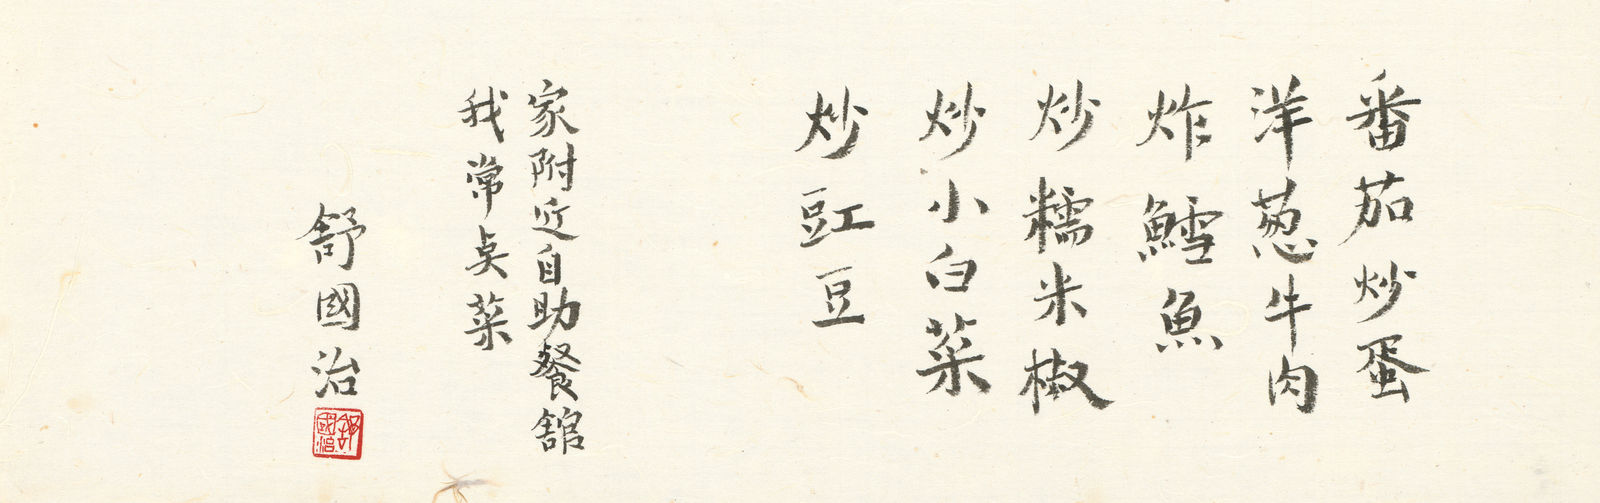 番茄炒蛋
洋葱牛肉
炸鱈魚
炒糯米椒
炒小白菜
炒豇豆
家附近自助餐舘
我常点菜
舒國治
舒國治